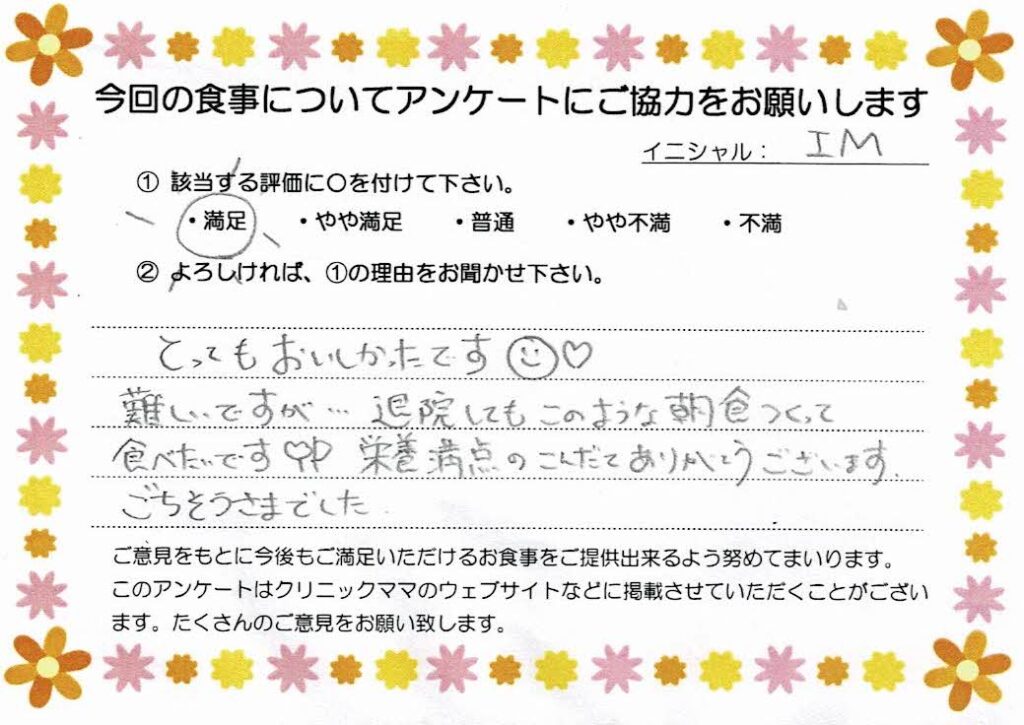 今回の食事についてアンケートにご協力をお願いします
イニシャル： IM
① 該当する評価に〇を付けて下さい。
・満足 ・やや満足 ・普通 ・やや不満 ・不満
② よろしければ、①の理由をお聞かせ下さい。
とってもおいしかったです ☺♡
難しいですが… 退院してもこのような朝食つくって
食べたいです 栄養満点のこんだてありがとうございます.
ごちそうさまでした
ご意見をもとに今後もご満足いただけるお食事をご提供出来るよう努めてまいります。
このアンケートはクリニックママのウェブサイトなどに掲載させていただくことがござい
ます。たくさんのご意見をお願い致します。